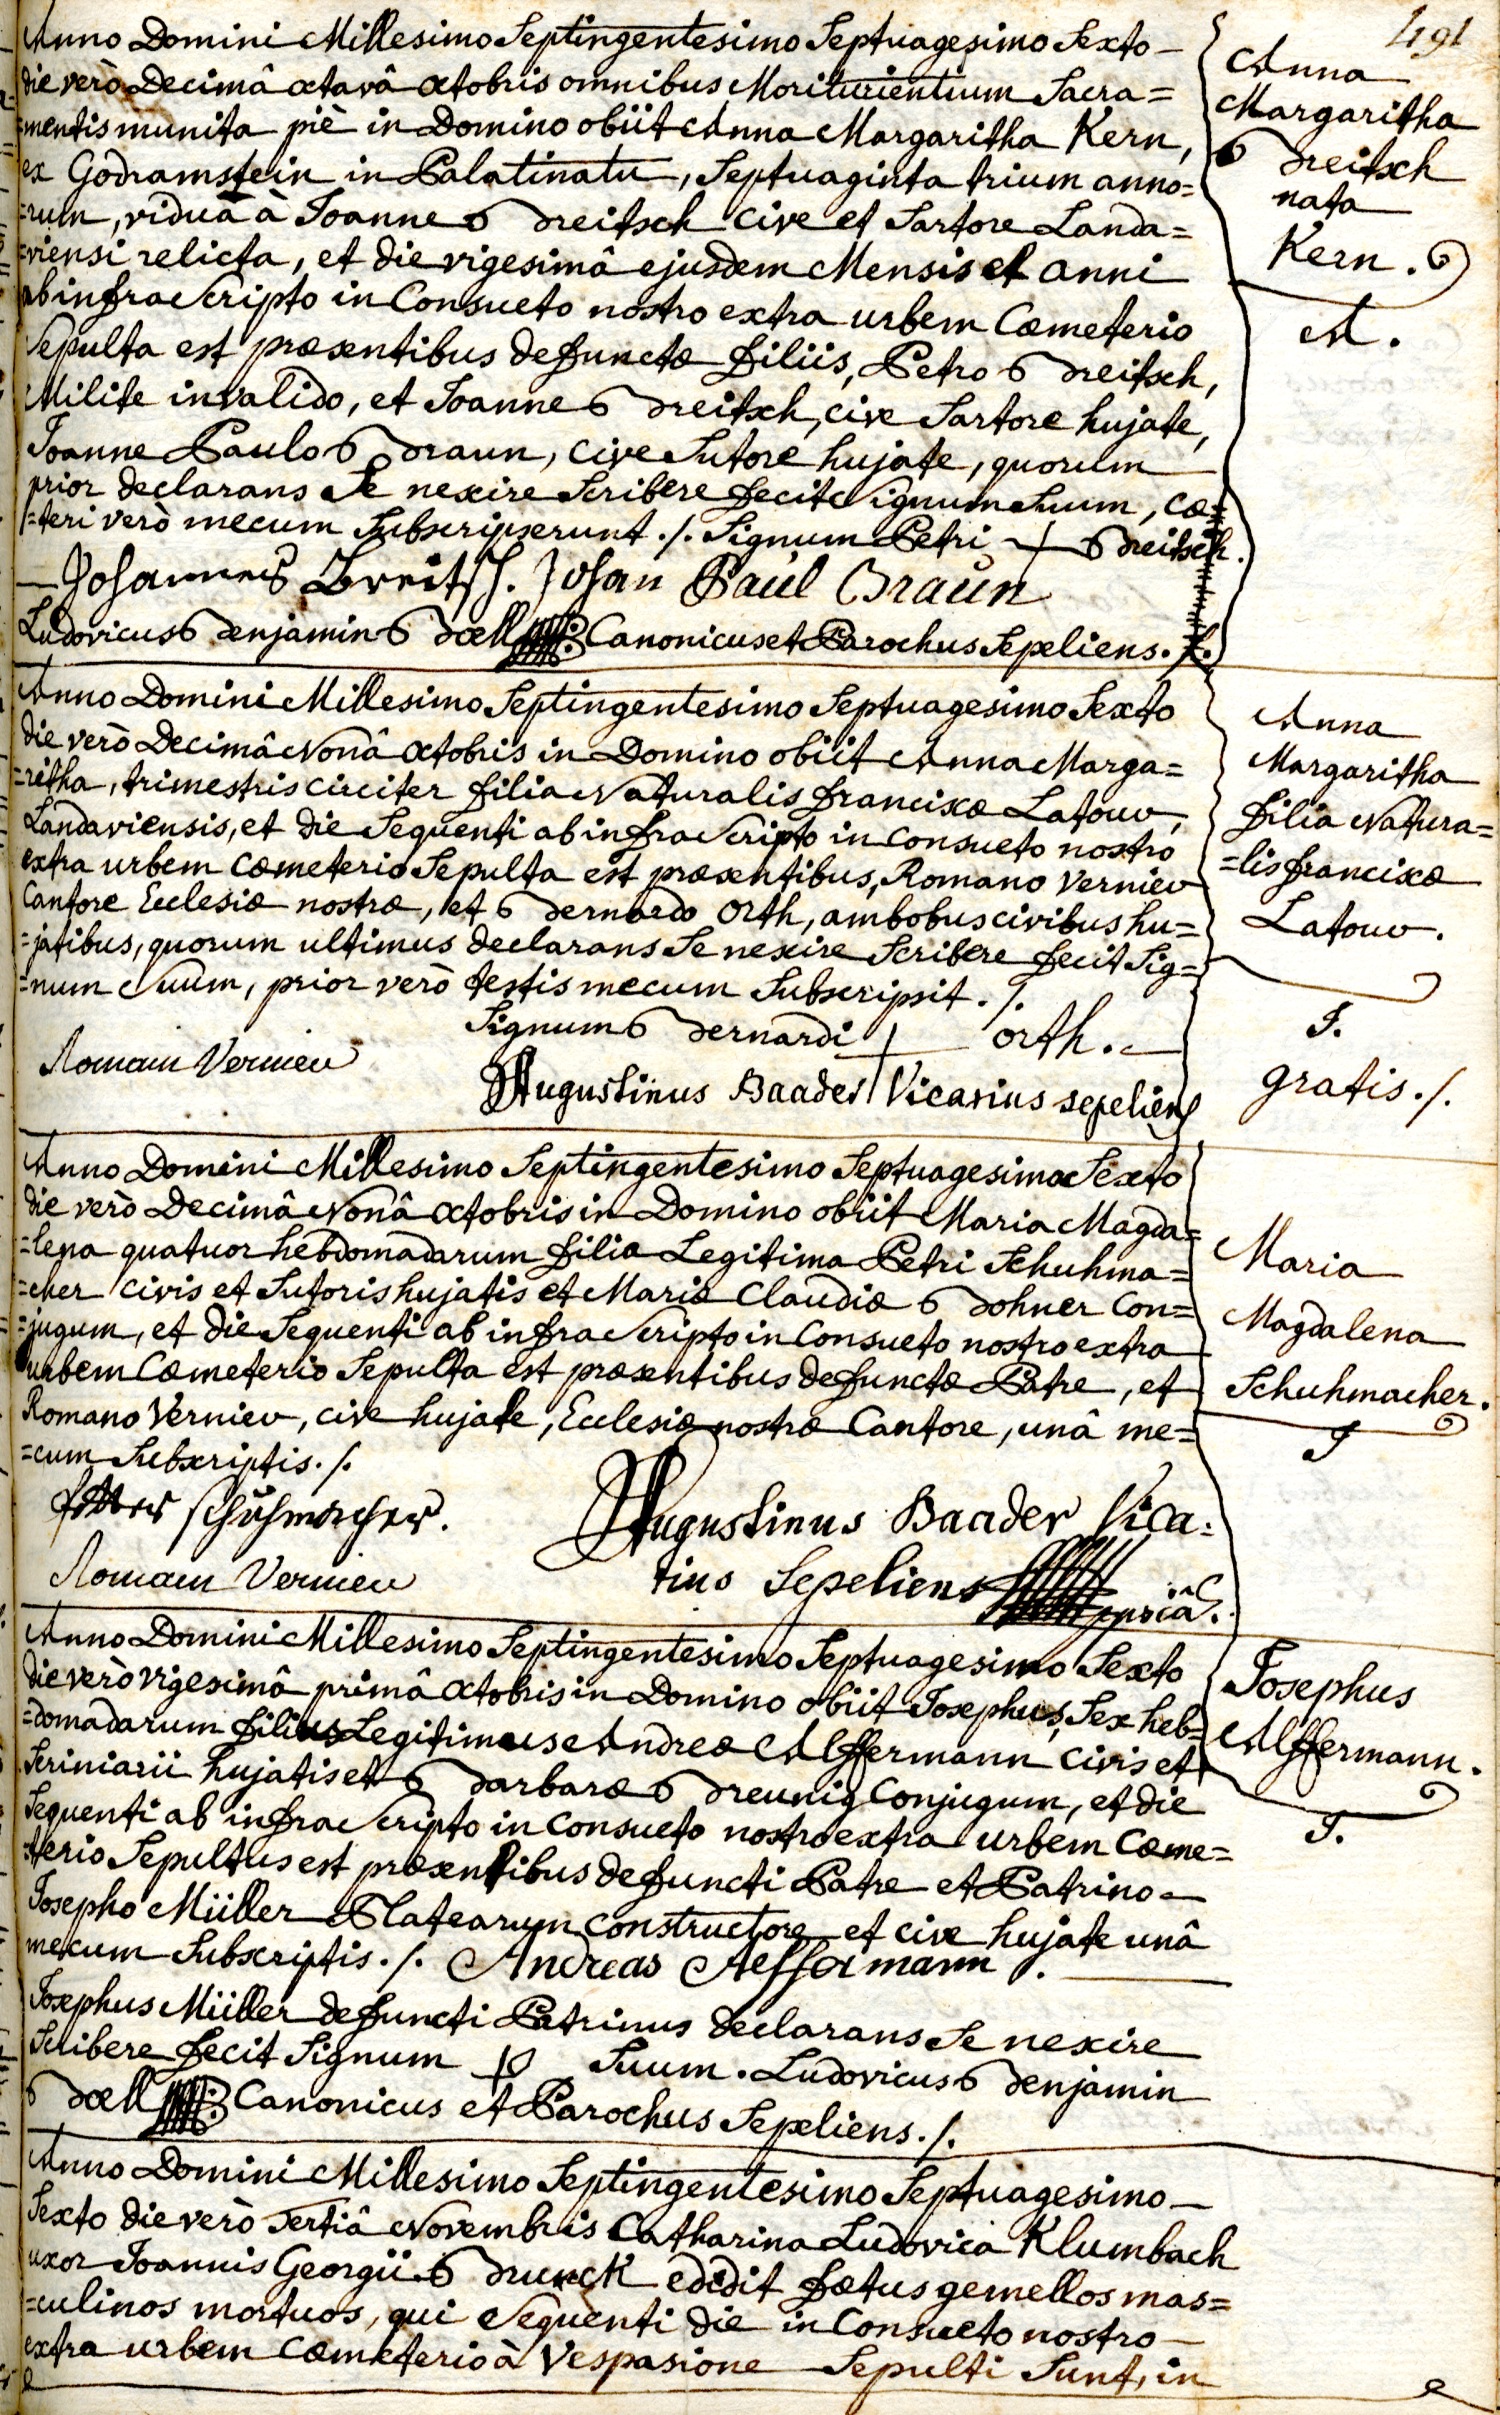 491
Anno Domini Millesimo Septingentesimo Septuagesimo Sexto
die verò Decimâ octavâ octobris omnibus Moriturientium Sacra=
=mentis munita piè in Domino obiit Anna Margaritha Kern,
ex Godramstein in Palatinatu, Septuaginta trium anno=
=rum, viduâ à Joanne Breitsch cive et Sartore Landa=
=viensi relicta, et die vigesimâ ejusdem Mensis et anni
ab infra Scripto in Consueto nostro extra urbem Cœmeterio
Sepulta est præsentibus defunctæ filiis, Petro Breitsch,
Milite invalido, et Joanne Breitsch, cive Sartore hujate,
Joanne Paulo Braun, cive Sutore hujate, quorum
prior declarans Se nescire Scribere fecit Signum Suum, cæ=
=teri verò mecum Subscripserunt ./. Signum Petri + Breitsch.
Johannes Breitsch. Johan Paul Braun
Ludovicus Benjamin Bœll Canonicus et Parochus Sepeliens ./.
Anna
Margaritha
Breitsch
nata
Kern.
A.
Anno Domini Millesimo Septingentesimo Septuagesimo Sexto
die verò Decimâ Nonâ octobris in Domino obiit Anna Marga=
=ritha, trimestris circiter filia Naturalis franciscæ Latouv,
Landaviensis, et die Sequenti ab infra Scripto in consueto nostro
extra urbem cœmeterio Sepulta est præsentibus, Romano Verniev
Cantore Ecclesiæ nostræ, et Bernardo Orth, ambobus civibus hu=
=jatibus, quorum ultimus declarans Se nescire Scribere fecit Sig=
=num Suum, prior verò testis mecum Subscripsit ./.
Signum Bernardi + Orth.
Romain Verniev
Augustinus Baader Vicarius sepeliens
Anna
Margaritha
filia Natura=
=lis franciscæ
Latouv.
J.
gratis ./.
Anno Domini Millesimo Septingentesimo Septuagesimo Sexto
die verò Decimâ Nonâ octobris in Domino obiit Maria Magda=
=lena quatuor hebdomadarum filia Legitima Petri Schuhma=
=cher civis et Sutoris hujatis et Mariæ Claudiæ Bohner Con=
=jugum, et die Sequenti ab infra Scripto in Consueto nostro extra
urbem Cœmeterio Sepulta est præsentibus defunctæ Patre, et
Romano Verniev, cive hujate, Ecclesiæ nostræ Cantore, unâ me=
=cum Subscriptis ./.
schuhmacher.
Augustinus Baader Vica=
rius Sepeliens
Romain Verniev
Maria
Magdalena
Schuhmacher.
J
Anno Domini Millesimo Septingentesimo Septuagesimo Sexto
die verò vigesimâ primâ octobris in Domino obiit Josephus, Sex heb=
=domadarum filius Legitimus Andreæ Alffermann civis et
Scriniarii hujatis et Barbaræ Breunig Conjugum, et die
Sequenti ab infra Scripto in Consueto nostro extra urbem Cœme=
=terio Sepultus est præsentibus defuncti Patre et Patrino
Josepho Müller Platearum constructore et cive hujate unâ
mecum Subscriptis ./. Andreas Aeffermann.
Josephus Müller defuncti Patrinus declarans Se nescire
Scribere fecit Signum Suum. Ludovicus Benjamin
Bœll Canonicus et Parochus Sepeliens ./.
Josephus
Alffermann.
J.
Anno Domini Millesimo Septingentesimo Septuagesimo
Sexto die verò Tertiâ Novembris Catharina Ludovica Klumbach
uxor Joannis Georgii Brunck edidit fœtus gemellos mas=
=culinos mortuos, qui Sequenti die in Consueto nostro
extra urbem Cœmeterio à Vespasione Sepulti Sunt, in